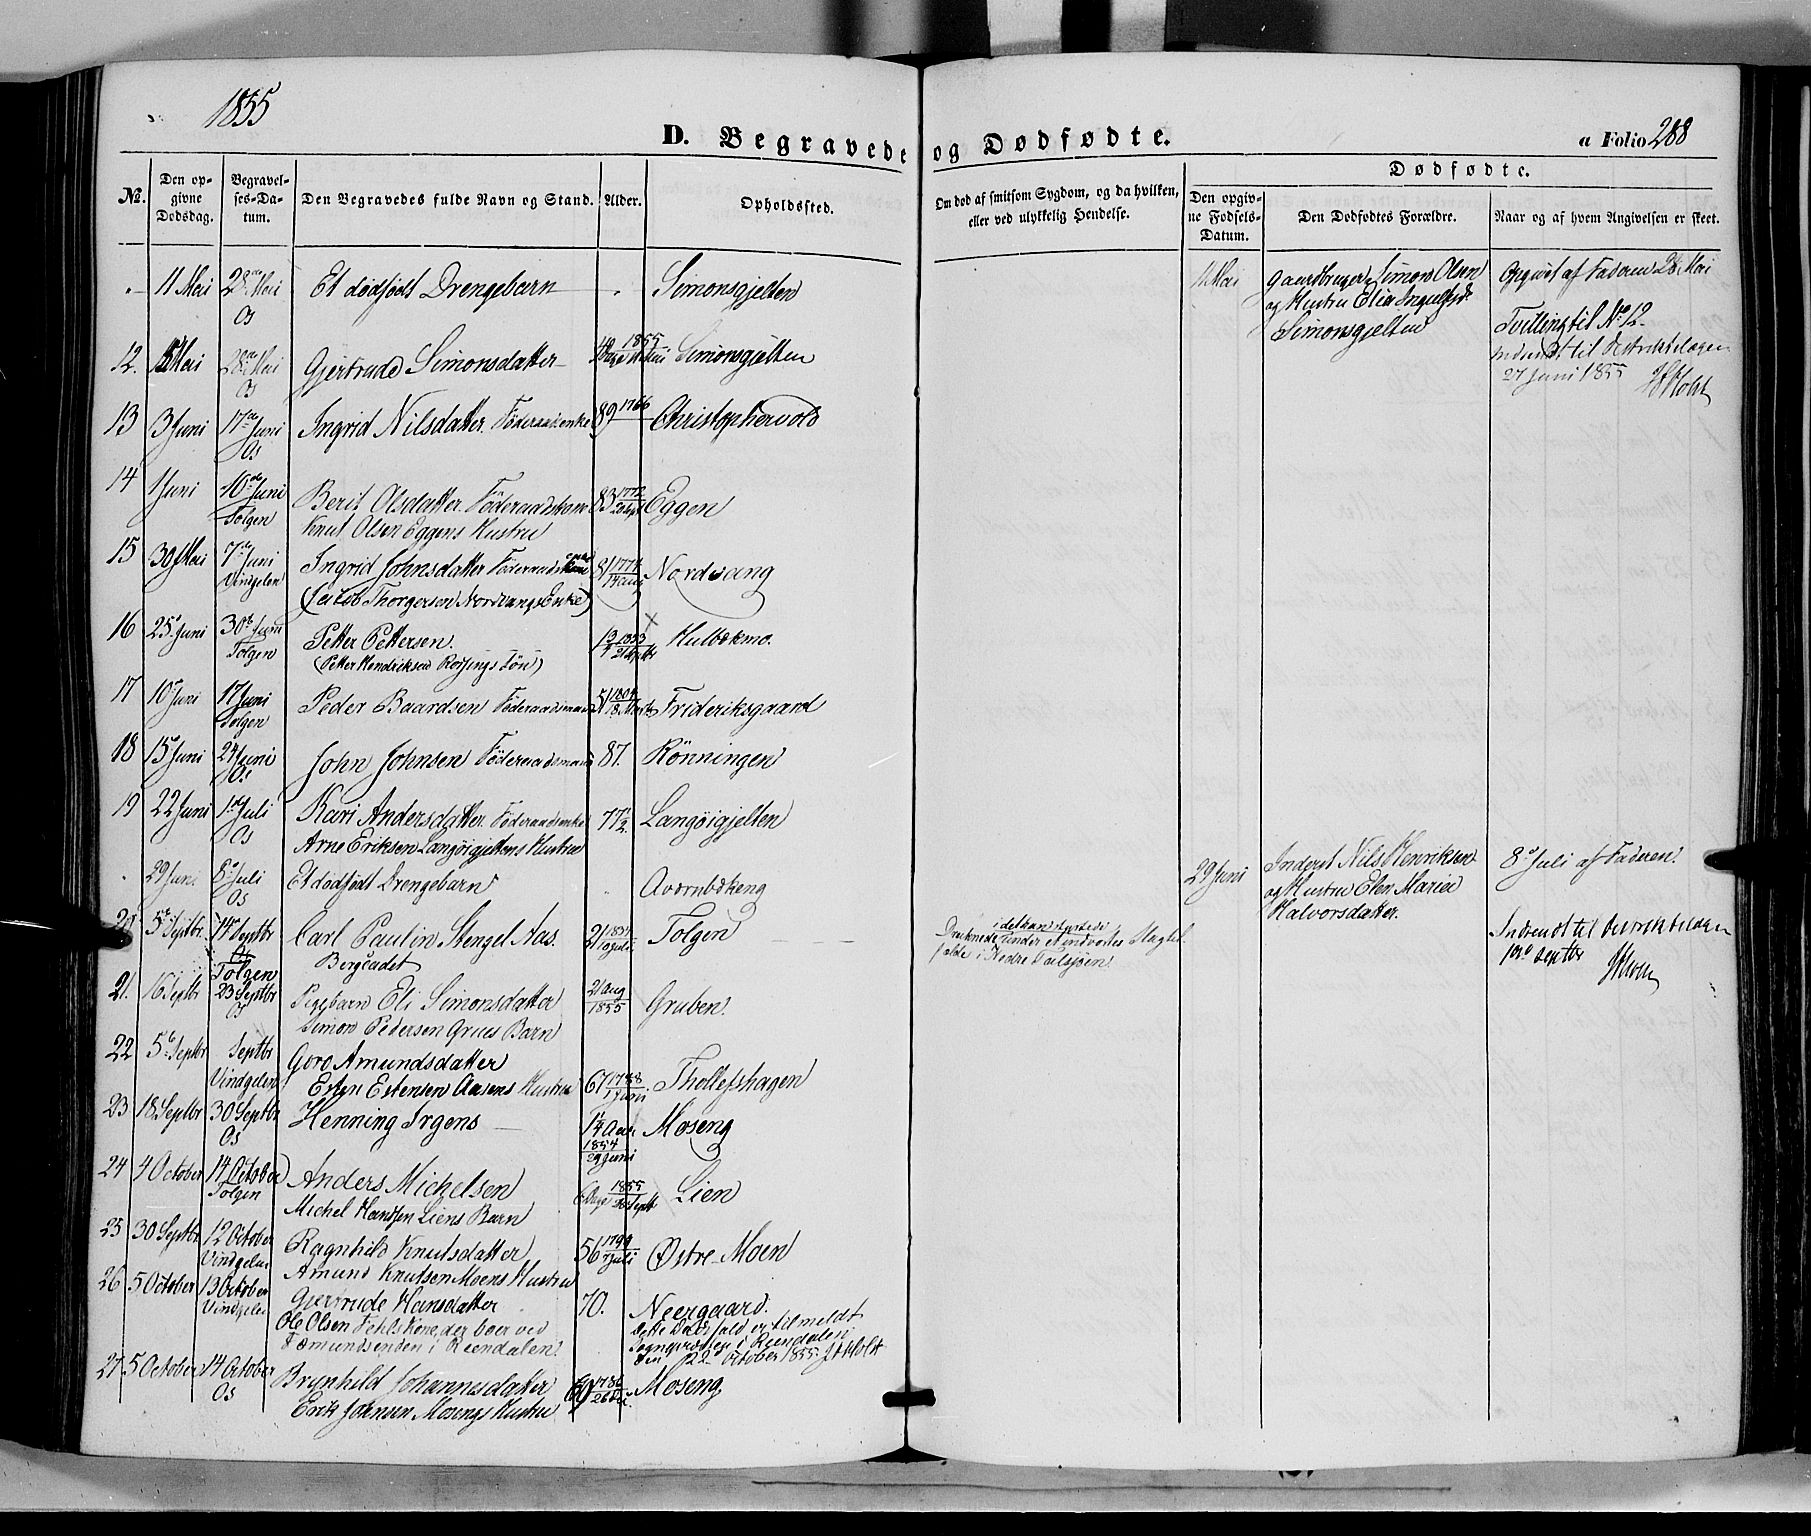 1855
D. Begravede og Dødfødte.
a Folio 288
No.
Den opgivne Dødsdag.
Begravelses-Datum.
Den Begravedes fulde Navn og Stand.
Alder.
Opholdssted.
Om død af smitsom Sygdom, og da hvilken, eller ved ulykkelig Hendelse.
Dødfødte.
Den opgivne Fødsels-Datum.
Den Dødfødtes Forældre.
Naar og af hvem Angivelsen er skeet.
11 Mai 28de Mai Et dødfødt Drengebarn Simonsgjelten 11 Mai Gaardbruger Simon Olsen Opgivet af Faderen 28 Mai
Os og Hustru Eli
Simonsgjelten Tvilling til No 12
12. Mai 28de Mai Gjertrude Simonsdatter 1855 Simonsgjelten Indsendt til Destriktslægen
Os 27 Juni 1855 Holst
13 3 Juni 17de Juni Ingrid Nilsdatter Föderaadsenke 89 1766 Christophervold
Os
14 1 Juni 10de Juni Berit Olsdatter Föderaadskone 83 1772 Eggen
Tolgen Knut Olsen Eggens Hustru
15 30 Mai 7de Juni Ingrid Johnsdatter Föderaadskone 81 1774 14 Aug Nordvang
Vingelen (Jacob Thorgersen Nordvangs Enke)
16 25 Juni 30te Juni Petter Pettersen. 1853 Hulbækmo.
Tolgen (Petter Hendriksen Søn)
17 10 Juni 17 Juni Peder Baardsen Föderaadsmand 51 1804 Frideriksgaard
Tolgen
18 15 Juni 24 Juni John Johnsen Föderaadsmand 87. Rönningen
Os
19 22 Juni 1de Juli Kari Andersdatter Föderaadsenke 77 1/2 Langöigjelten
Os Arne Eriksen Langöigjeltens Hustru
29 Juni 8 Juli Et dødfødt Drengebarn Avornbækeng 29 Juni Inderst Nils Henriksen 8 Juli af Faderen
Os og Hustru Elen Maria
Halvorsdatter.
20 5te Septbr. 14 Septbr Carl Paulin Stengel Aas. 21 Juli Tolgen Druknede under et
Tolgen Bergcadet i Nedre Indsendt til Destriktslægen
Septbr
21. 16 Septbr 23 Septbr Pigebarn Eli Simonsdatter 21 Aug 1855 Gruben.
Os Simon Pedersen Grues Barn
22 5te Septbr Septbr Goro Amundsdatter
Vindgelen Esten Estensen Aasens Hustru 67 1788 Thollefshagen
23 18 Septbr 30 Septbr Henning Irgens 1854 29 Juni Moseng
Os
24 4 October 14 October Anders Michelsen 1855 Septbr Lien
Tolgen Michel Hansen Liens Barn
25 30 Septbr 12 October Ragnhild Knutsdatter 56 1799 Juli Østre Moen
Vindgelen Amund Knutsen Moens Hustru
26 5 October 13 October Gjertrude Hansdatter 70. Neergaard.
Vindgelen Ole Olsen Kone, der boer ved Dette Dødsfald er tilmeldt
Fæmundsenden i Reendalen. Sognepræsten i Reendalen
den 22 October 1855. Holst
27 5 October 14 October Brynhild Johannesdatter 69 1786 26 Moseng
Os Erik Johnsen Mosengs Hustru